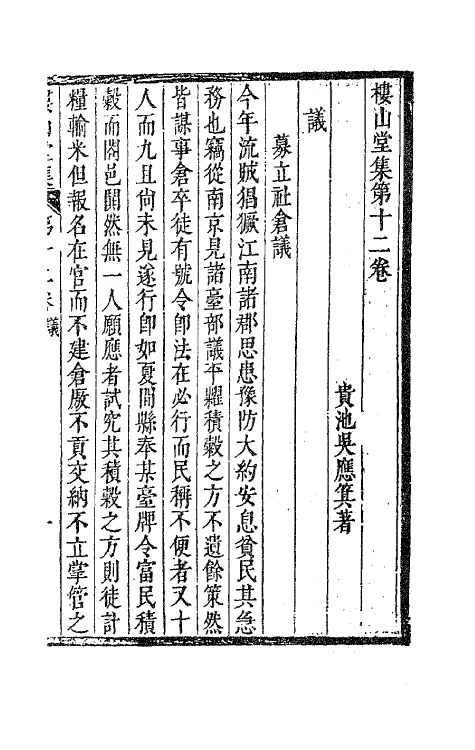 樓山堂集第十二卷
貴池吳應箕著
議
募立社倉議
今年流賊猖獗江南諸郡思患豫防大約安息貧民其急
務也竊從南京見諸臺部議平糶積穀之方不遺餘策然
皆謀事倉卒徒有號令卽法在必行而民稱不便者又十
人而九且尙未見遂行卽如夏間縣奉某臺牌令富民積
穀而閤邑鬨然無一人願應者試究其積穀之方則徒計
糧輸米但報名在官而不建倉厫不責交納不立掌管之
第十二卷 議
一